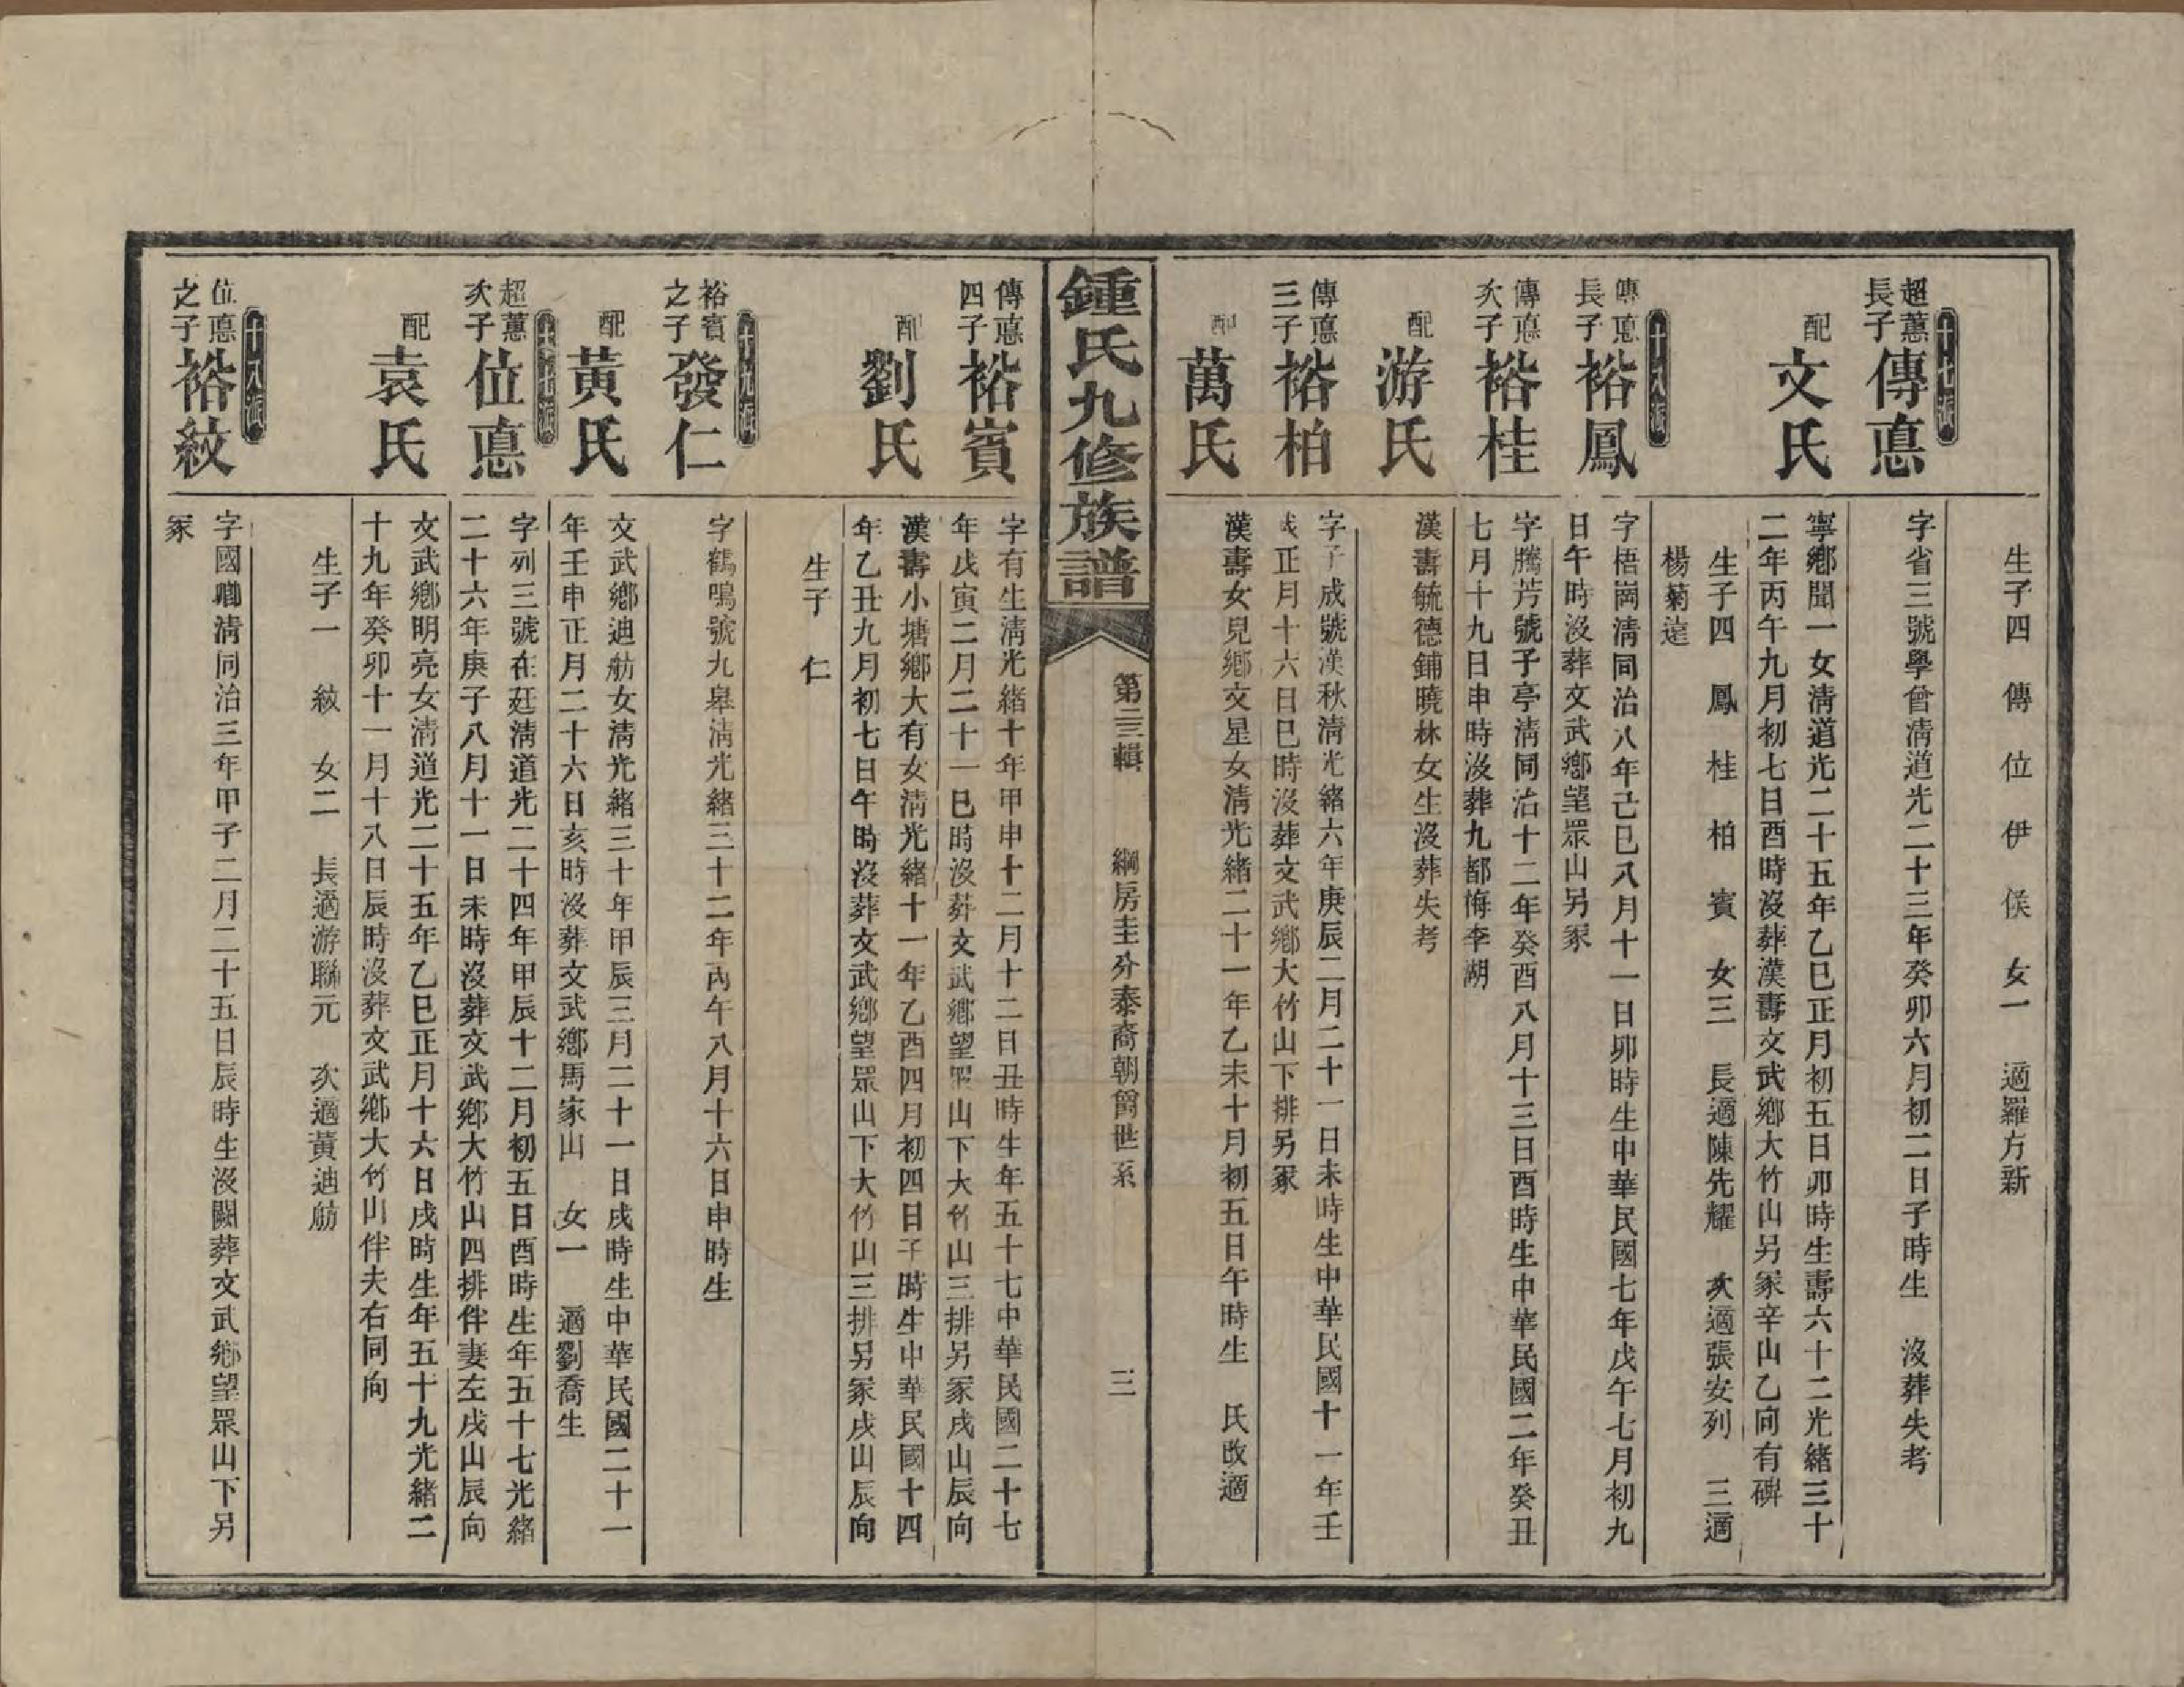 生子四　傳　位　伊　侯　女一　適羅方新
十七派
超蕙長子　傳悳
字省三號學曾淸道光二十三年癸卯六月初二日子時生　沒葬失考
配　文氏
寧鄕聞一女淸道光二十五年乙巳正月初五日卯時生壽六十二光緒三十
二年丙午九月初七日酉時沒葬漢壽文武鄕大竹山另冢辛山乙向有碑
生子四　鳳　桂　柏　賓　女三　長適陳先耀　次適張安列　三適
楊菊逵
十八派
傳悳長子　裕鳳
字梧崗淸同治八年己巳八月十一日卯時生中華民國七年戊午七月初九
日午時沒葬文武鄕望眾山另冢
傳悳次子　裕桂
字騰芳號子亭淸同治十二年癸酉八月十三日酉時生中華民國二年癸丑
七月十九日申時沒葬九都侮李湖
配　游氏
漢壽毓德鋪曉林女生沒葬失考
傳悳三子　裕柏
字子成號漢秋淸光緒六年庚辰二月二十一日未時生中華民國十一年壬
戌正月十六日巳時沒葬文武鄕大竹山下排另冢
配　萬氏
漢壽女兒鄕交星女淸光緒二十一年乙未十月初五日午時生　氏改適
鍾氏九修族譜　第三輯　綱房圭分泰裔朝簡世系　三
傳悳四子　裕賓
字有生淸光緒十年甲申十二月十二日丑時生年五十七中華民國二十七
年戊寅二月二十一巳時沒葬文武鄕望眾山下大竹山三排另冢戌山辰向
配　劉氏
漢壽小塘鄕大有女淸光緒十一年乙酉四月初四日子時生中華民國十四
年乙丑九月初七日午時沒葬文武鄕望眾山下大竹山三排另冢戌山辰向
生子　仁
十九派
裕賓之子　發仁
字鶴鳴號九皋淸光緒三十二年丙午八月十六日申時生
配　黃氏
文武鄕迪舫女淸光緒三十年甲辰三月二十一日戌時生中華民國二十一
年壬申正月二十六日亥時沒葬文武鄕馬家山　女一　適劉喬生
十七派
超蕙次子　位悳
字列三號在廷淸道光二十四年甲辰十二月初五日酉時生年五十七光緒
二十六年庚子八月十一日未時沒葬文武鄕大竹山四排伴妻左戌山辰向
配　袁氏
文武鄕明亮女淸道光二十五年乙巳正月十六日戌時生年五十九光緒二
十九年癸卯十一月十八日辰時沒葬文武鄕大竹山伴夫右同向
生子一　紋　女二　長適游聯元　次適黃迪舫
十八派
位悳之子　裕紋
字國職淸同治三年甲子二月二十五日辰時生沒闕葬文武鄕望眾山下另
冢